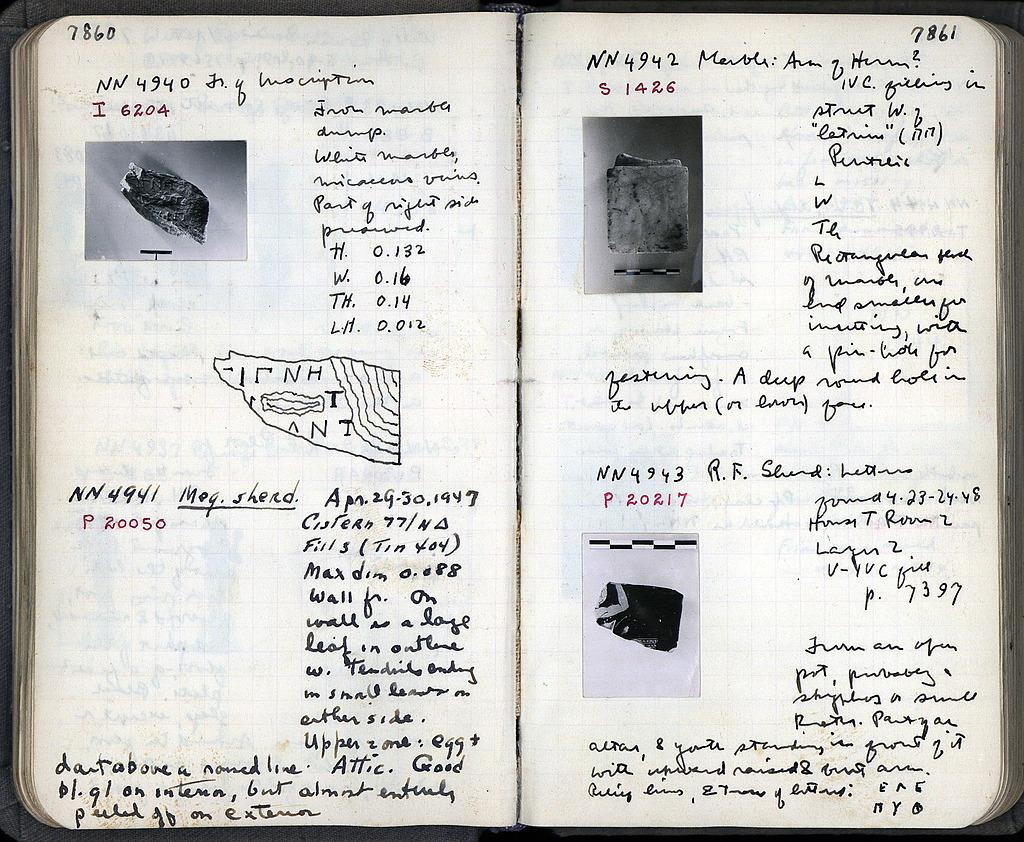 7860
NN 4940 Fr. of Inscription
I 6204
From marble
dump.
White marble,
micaceous veins.
Part of right side
preserved.
H. 0.132
W. 0.16
TH. 0.14
LH. 0.012
ΙΓΝΗ
Τ
ΛΝΤ
NN 4941 Meg. sherd. Apr. 29-30, 1947
P 20050
Cistern 77/ΝΔ
Fill 3 (Tin 404)
Max dim 0.088
Wall fr. On
wall is a large
leaf in outline
w. tendrils ending
in small leaves on
either side.
Upper zone: egg +
dart above a raised line. Attic. Good
bl. gl on interior, but almost entirely
peeled off on exterior
7861
NN 4942 Marble: Arm of Herm?
S 1426
IVC. filling in
struct W. of
"latrine" (ΠΠ)
Pentelic
L
W
Th
Rectangular
of marble, one
end smaller for
insetting, with
a pin-hole for
fastening. A deep round hole in
the upper (or lower) face.
NN 4943 R.F. Sherd: Letters
P. 20217
found 4-23-24-48
House T Room 2
Layer 2
V-IVC fill
p. 7397
From an open
pot, probably a
skyphos or small
krater. Part of an
altar, & youth standing in front of it
with upward raised & bent arm.
Relief lines, & traces of letters: ΕΛΕ
ΠΥΘ